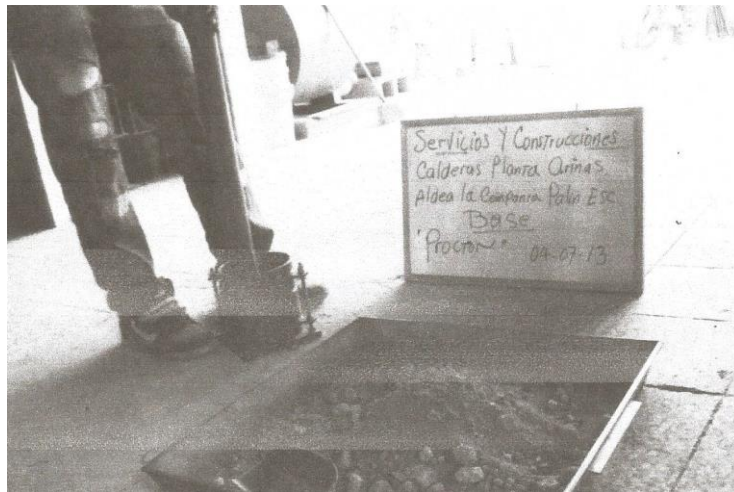 Servicios Y Construcciones
Calderas Planta Arinas
Aldea la Compania Palin Esc
Base
"Procton"
04-07-13